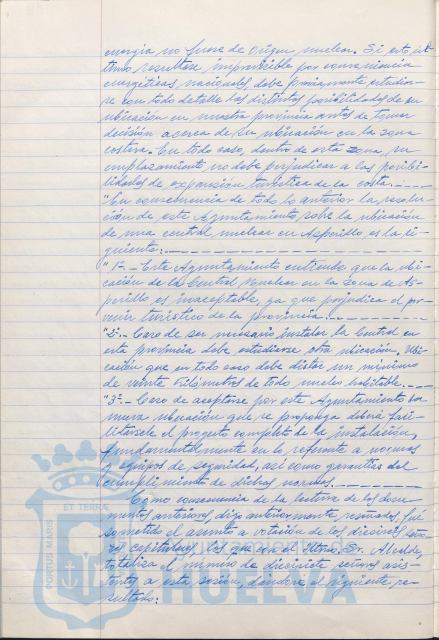 energía no fuera de origen nuclear. Si esto úl-
timo resultase imprevisible por conveniencia
energéticas nacionales, debe primeramente estudiar-
se con todo detalle las distintas posibilidades de su
ubicación en nuestra provincia antes de tomar
decisión acerca de su ubicación en la zona
costera. En todo caso, dentro de esta zona, su
emplazamiento no debe perjudicar a las posibi-
lidades de expansión turística de la costa.
"En consecuencia de todo lo anterior la resolu-
ción de este Ayuntamiento sobre la ubicación
de una central nuclear en Asperillo es la si-
guiente:
"1º.- Este Ayuntamiento entiende que la ubi-
cación de la Central Nuclear en la zona de As-
perillo es inaceptable, ya que perjudica el por-
venir turístico de la provincia.
"2º.- Caso de ser necesario instalar la Central en
esta provincia debe estudiarse otra ubicación. Ubi-
cación que en todo caso debe distar un mínimo
de veinte kilómetros de todo núcleo habitable.
"3º.- Caso de aceptarse por este Ayuntamiento la
nueva ubicación que se proponga deberá faci-
litársele el proyecto completo de la instalación,
fundamentalmente en lo referente a normas
y equipos de seguridad, así como garantías del
cumplimiento de dichas normas.
Como consecuencia de la lectura de los docu-
mentos anteriores, digo anteriormente reseñados, fué
sometido el asunto a votación de los dieciséis seño-
res capitulares, los que con el Iltmo. Sr. Alcalde,
totaliza el número de diecisiete señores asis-
tentes a esta sesión, dándose el siguiente re-
sultado:
PORTUS MARIS
ET TERRAE
HUELVA